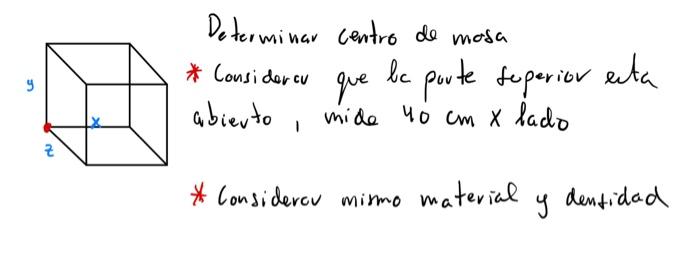 Determinar centro de masa
* Considerar que la parte superior esta
abierto, mide 40 cm x lado
y
x
z
* Considerar mismo material y densidad